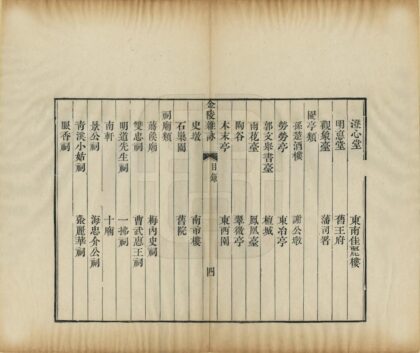 澄心堂 東南佳麗樓
明志堂 舊王府
觀象臺 藩司署
亭類
孫楚酒樓 謝公墩
勞勞亭 東冶亭
郭文舉書臺 檀城
雨花臺 鳳凰臺
陶谷 翠微亭
木末亭 東西園
史墩 南市樓
石巢園 舊院
金陵雜詠 目錄 四
祠廟類
蔣侯廟 梅內史祠
雙忠祠 曹武惠王祠
明道先生祠 一拂祠
南軒 十廟
景公祠 海忠介公祠
青溪小姑祠 張麗華祠
眼香祠